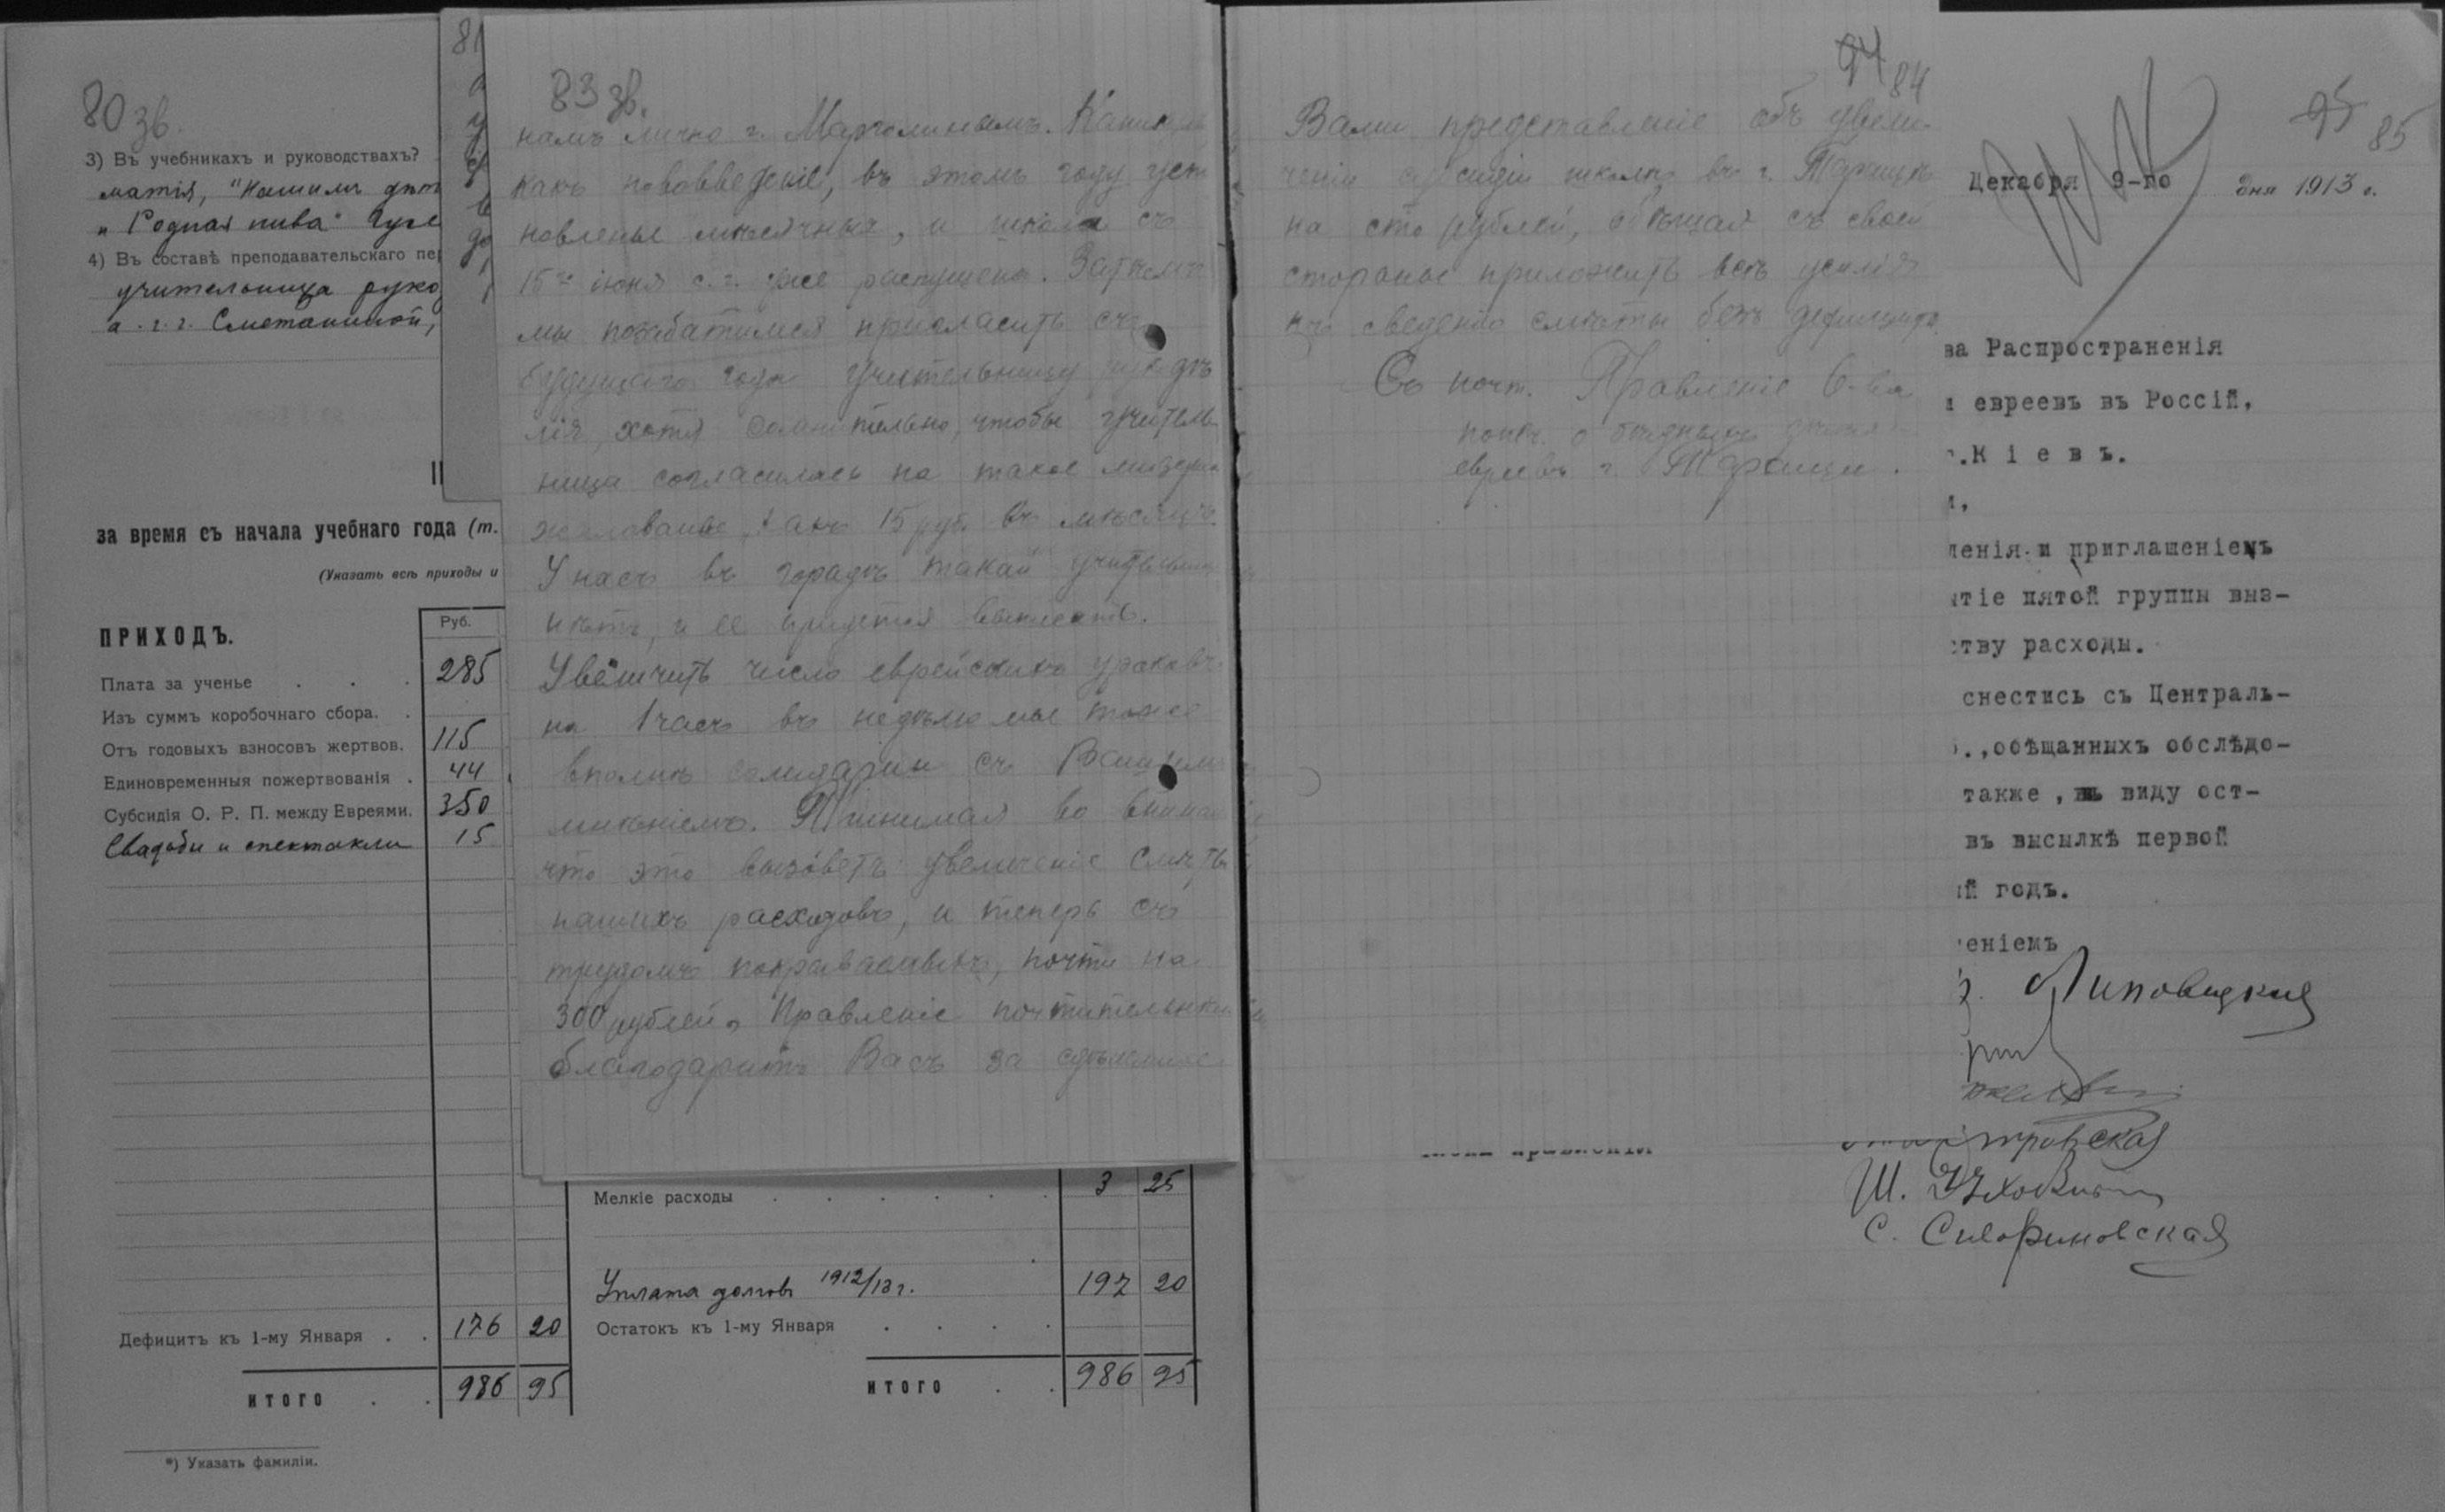 80 зв.
3) Въ учебникахъ и руководствахъ?
матія, "Нашимъ дѣт
"Родная нива"
4) Въ составѣ преподавательскаго пер
учительница руко
а. г. г. Сметаниной,
за время съ начала учебнаго года (т.
(Указать всѣ приходы и
ПРИХОДЪ.
Руб.
Плата за ученье . . . 285
Изъ суммъ коробочнаго сбора. .
Отъ годовыхъ взносовъ жертвов. 115
Единовременныя пожертвованія . 44
Субсидія О. Р. П. между Евреями. 350
Свадьби и спектакли 15
Дефицитъ къ 1-му Января . . 176 20
ИТОГО . . 986 95
*) Указать фамиліи.
81
83 зв.
намъ лично г. Марголинымъ. Каник
какъ нововведеніе, въ этомъ году уст
новлены мѣсячныя, и школа съ
15го іюня с. г. уже распущена. Затѣмъ
мы позаботимся пригласить съ
будущаго года учительницу рукодѣ
лія, хотя сомнительно, чтобы учитель
ница согласилась на такое мизерное
жалованье, какъ 15 руб. въ мѣсяцъ.
У насъ въ городѣ такой учительницы
нѣтъ, и ее придется выписать.
Увеличить число еврейскихъ уроковъ
на 1 часъ въ недѣлю мы тоже
вполнѣ солидарны съ Вашимъ
мнѣніемъ. Принимая во вниман
что это вызоветъ увеличеніе смѣты
нашихъ расходовъ, и теперь съ
трудомъ покрываемыхъ, почти на
300 рублей, Правленіе почтительнѣй
благодаритъ Васъ за сдѣланное
Мелкіе расходы . . . . . . 3 25
Уплата долговъ 1912/13 г. 197 20
Остатокъ къ 1-му Января . . . . .
ИТОГО . . 986 95
94 84
Вами представленіе объ увели-
ченіи субсидіи школѣ въ г. Таращѣ
на сто рублей, обѣщая съ своей
стороны приложить всѣ усилія
къ сведенію смѣты безъ дефицита.
Съ почт. Правленіе О-ва
попеч. о бѣдныхъ
евреевъ г. Таращи.
95 85
Декабря 9-го дня 1913 г.
ва Распространенія
евреевъ въ Россіи,
г.К і е в ъ.
ленія и приглашеніемъ
тіе пятой группы выз-
тву расходы.
снестись съ Централь-
.,обѣщанныхъ обслѣдо-
также , въ виду ост-
въ высылкѣ первой
й годъ.
еніемъ
Липовецкий
Ш.
С.